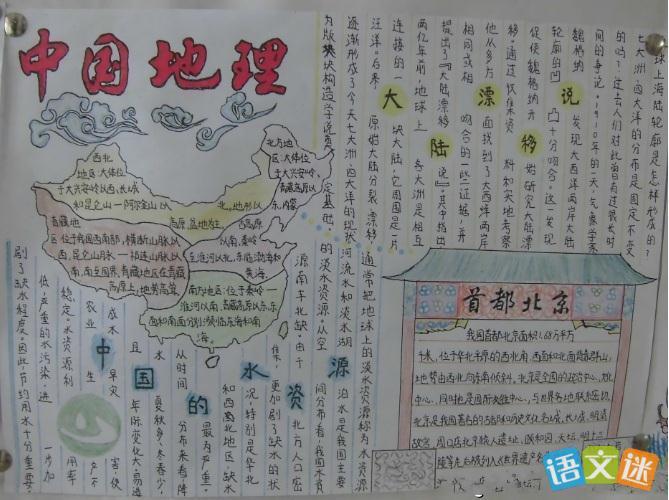 中国地理
西北
地区:大体位
于大兴安岭以西,长城
和昆仑山—阿尔金山以
北方地
区:大体位
于大兴安岭、
青藏高原以
东,内蒙
青藏地
区位于我国西南部,横断山脉以
西,
淮河以南、青藏高原以东,东
面和南面分别
大陆漂移说
球上海陆轮廓是怎样形成的?
七大洲、四大洋的分布是固定不变
的吗?过去人们对此曾有过很长时
间的争论。1910年的一天,气象学家
魏格纳 发现大西洋两岸大陆
轮廓的凹 凸十分吻合。这一发现
促使魏格纳开 始研究大陆漂
移。通过收集资 料和实地考察,
他从多方 面找到了大西洋两岸
相同或相 吻合的一些证据,并
提出了“大陆漂移 说”。其中指出
两亿年前,地球上 各大洲是相互
连接的一 块大陆,它周围是一片
汪洋。后来 原始大陆分裂 漂移
逐渐形成了今天七大洲、四大洋的现状
中国的水资源
通常把地球上的淡水资源称为水资源
河流水和淡水湖 泊水是我国主要
的淡水资源。从空 间分布看,我国水资
源南丰北缺。由于 北方人口密
集,更加剧了缺水的状
况,特别是华北
和西北地区缺水
最为严重。
从时间 分布来看,降
水 夏秋多、冬春少,
且 年际变化大,易造
成水 旱灾 害,使
农业 生 产不
稳定。水资源利 用率
低,严重的水污染,进 一步加
剧了缺水程度。因此,节约用水十分重要。
首都北京
我国首都北京面积1.68万平方
千米,位于华北平原的西北端,西面和北面
地势由西北向东南倾斜。北京是全国的政治中心、文化
中心,同时也是国际交往中心,与世界各地联系密切。
北京是我国著名的古都和历史文化名城,长城、明清
故宫、周口店北京猿人遗址、颐和园、天坛、明十三
陵等先后被列入《世界遗产
语文迷